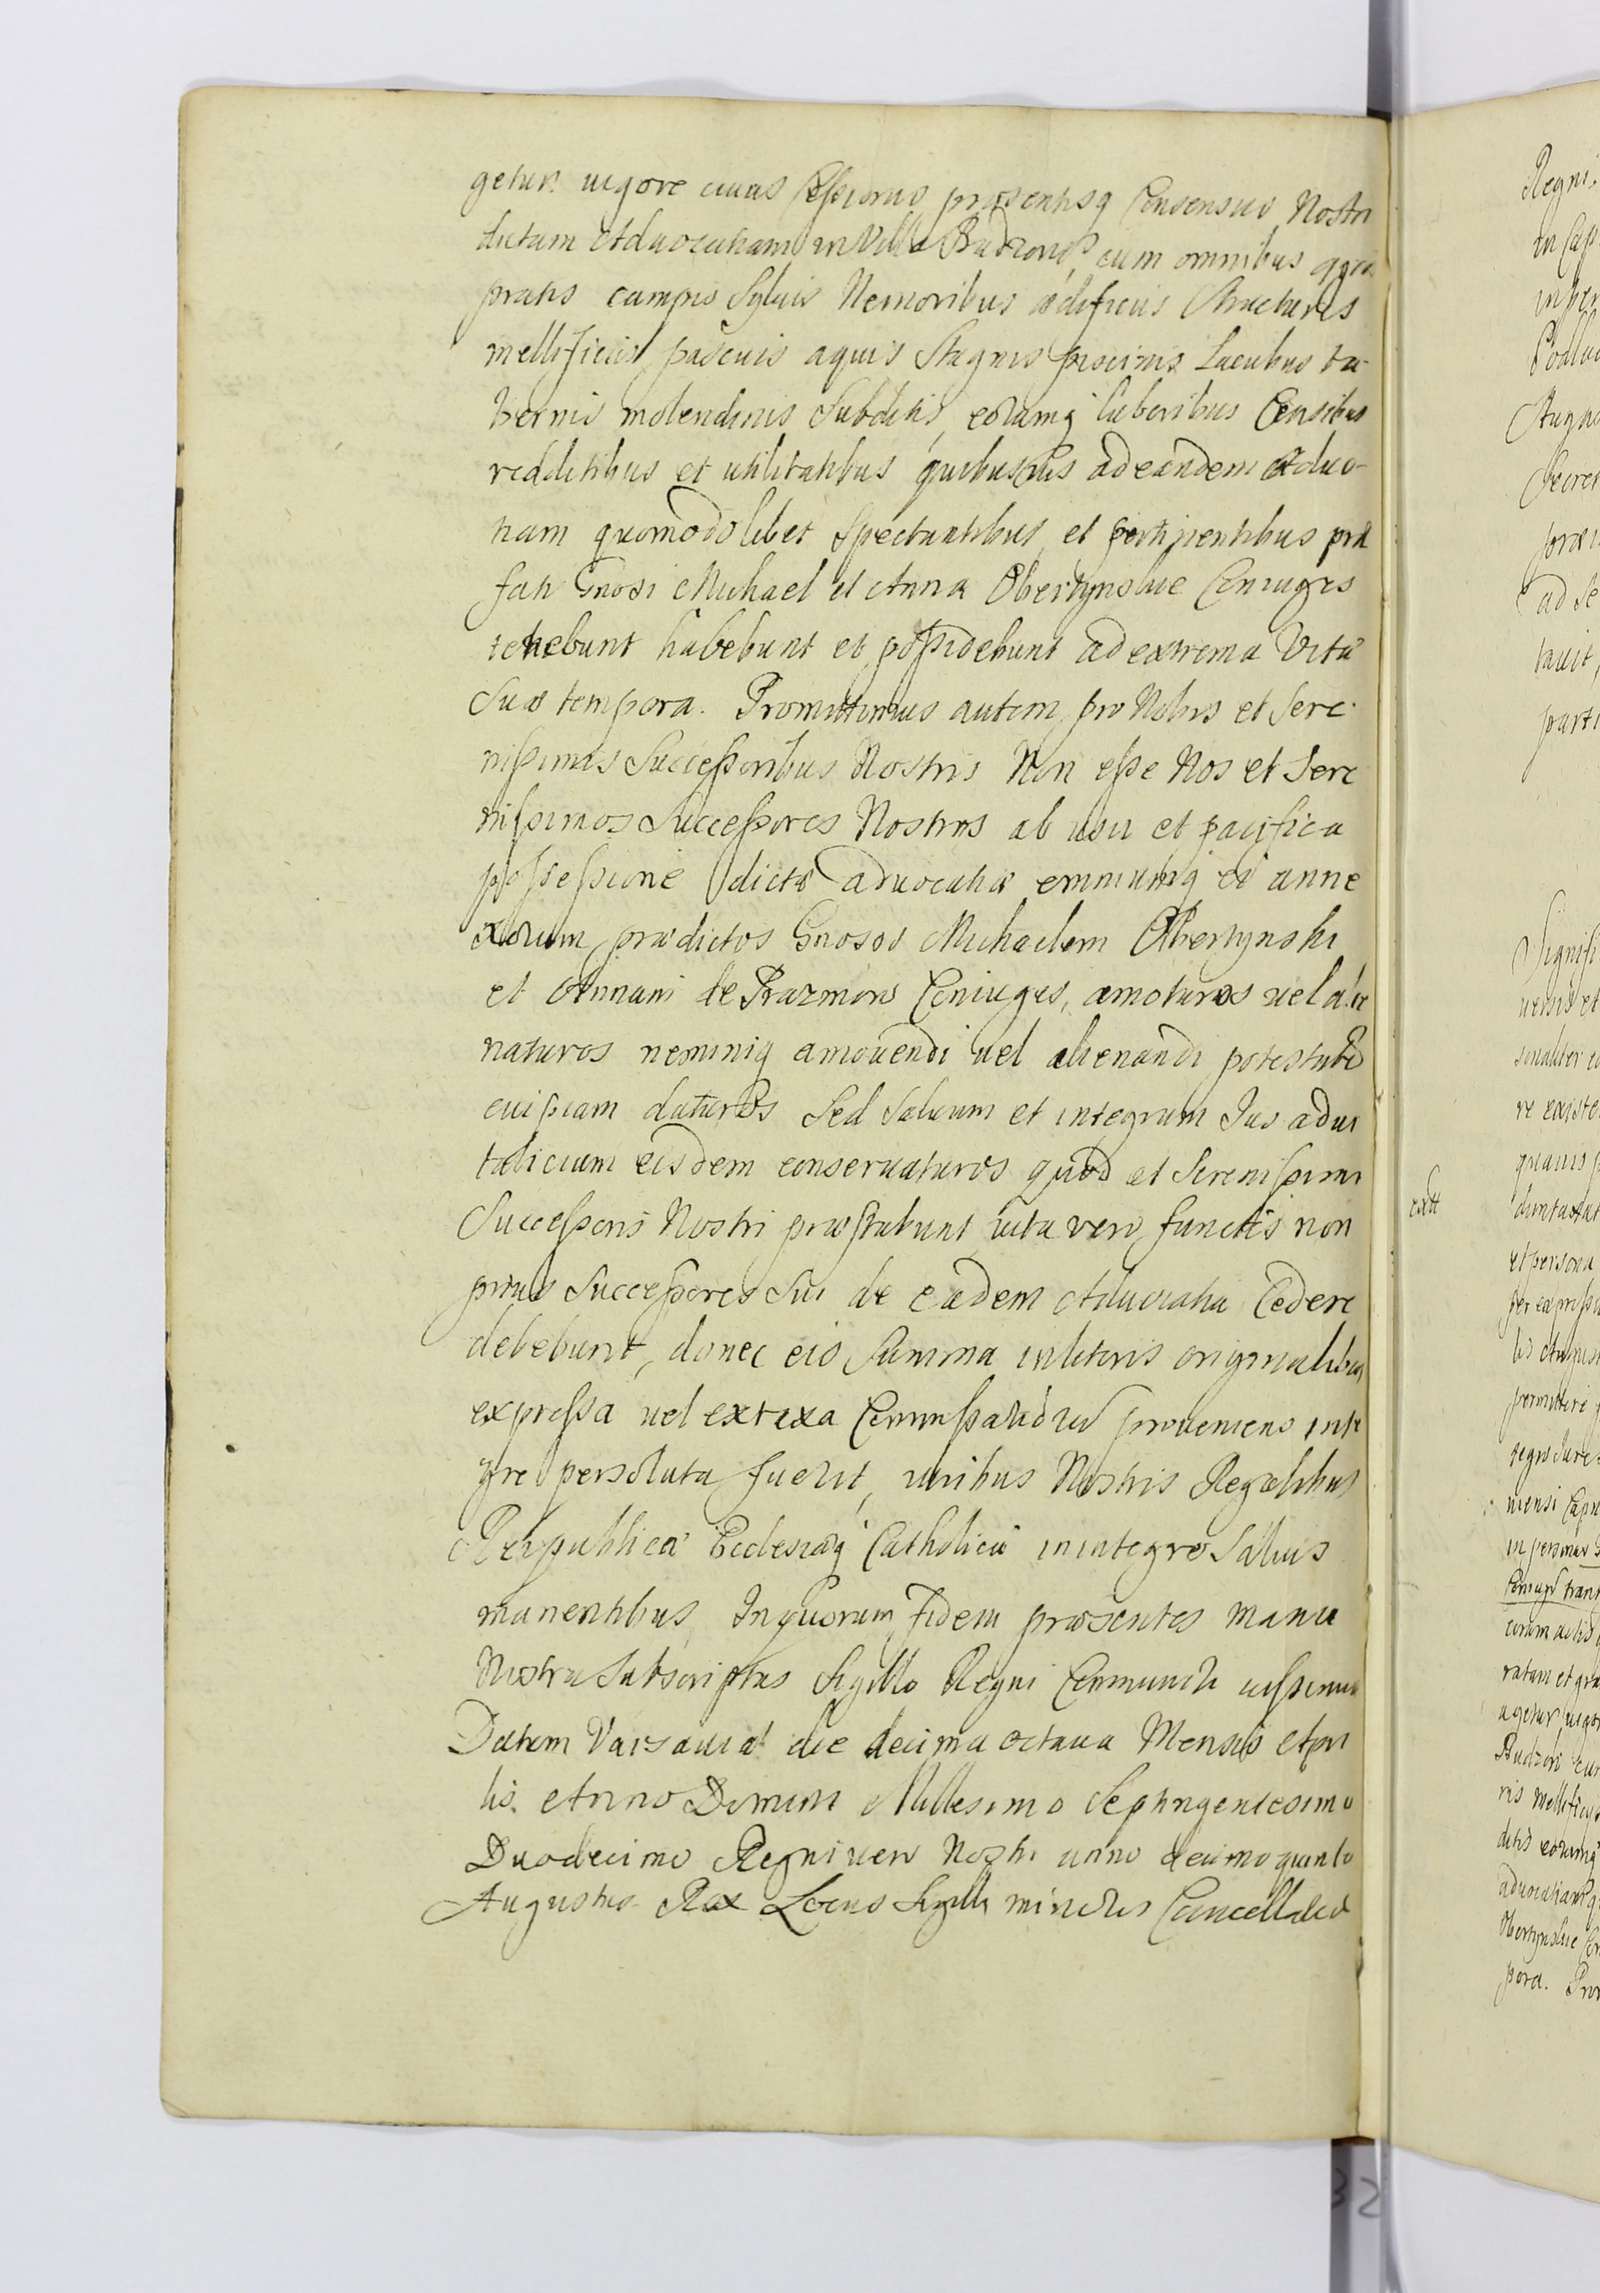 getur vigore cuius Cessionis præsentisq Consensus Nostri
dictam Advocatiam in Villa Budzon, cum omnibus agris
pratis campis Sylvis Nemoribus ædificiis Structuris
mellificiis pascuis aquis Stagnis piscinis Lacubus ta-
bernis molendinis Subditis, eorumq laboribus Censibus
redditibus et utilitatibus quibusvis ad eandem Advo-
tiam quomodolibet Spectantibus et pertinentibus præ
fati Gnosi Michael et Anna Obertynskie Coniuges
tenebunt habebunt et possidebunt ad extrema Vitæ
Suæ tempora. Promittimus autem pro Nobis et Sere-
nissimis Successoribus Nostris Non esse Nos et Sere
nissimos Successores Nostros ab usu et pacifica
possessione dictæ advocatiæ omniumq ei anne
xorum prædictos Gnosos Michaelem Obertynski
et Annam de Prazmow Coniuges, amoturos vel alie
naturos neminiq amovendi vel alienandi potestatem
cuipiam daturos Sed Salvum et integrum Jus advi
talicium eisdem conservaturos quod et Serenissimi
Successores Nostri præstabunt vita vero functis non
prius Successores Sui de eadem Advocatia Cedere
debebunt, donec eis Summa in literis originalibus
expressa vel ex taxa Commissariorum proveniens inte
gre persoluta fuerit, iuribus Nostris Regalibus
Reipublicæ Ecclesiæq Catholicæ in integro Salvis
manentibus, In quorum fidem præsentes manu
Nostra Subscriptas Sigillo Regni Communiri iussimus
Datum Varsaviæ die decima octava Mensis Apri
lis. Anno Domini Millesimo Septingentesimo
Duodecimo Regni vero Nostri anno decimo quinto
Augustus Rex Locus Sigilli minoris Cancellariæ
extt
Regni,
in Cap
Augus
Secret
ad Se
tavit,
parti
Signifi
versis et
re existe
quavis
et persona
permittere
in personas
Coniugum trans
coram actis
ratam et gra
agetur, vigor
Budzon cum
ris mellificiis
ditis eorumq
advocatiam q
Obertynskie Con
pora. Prom